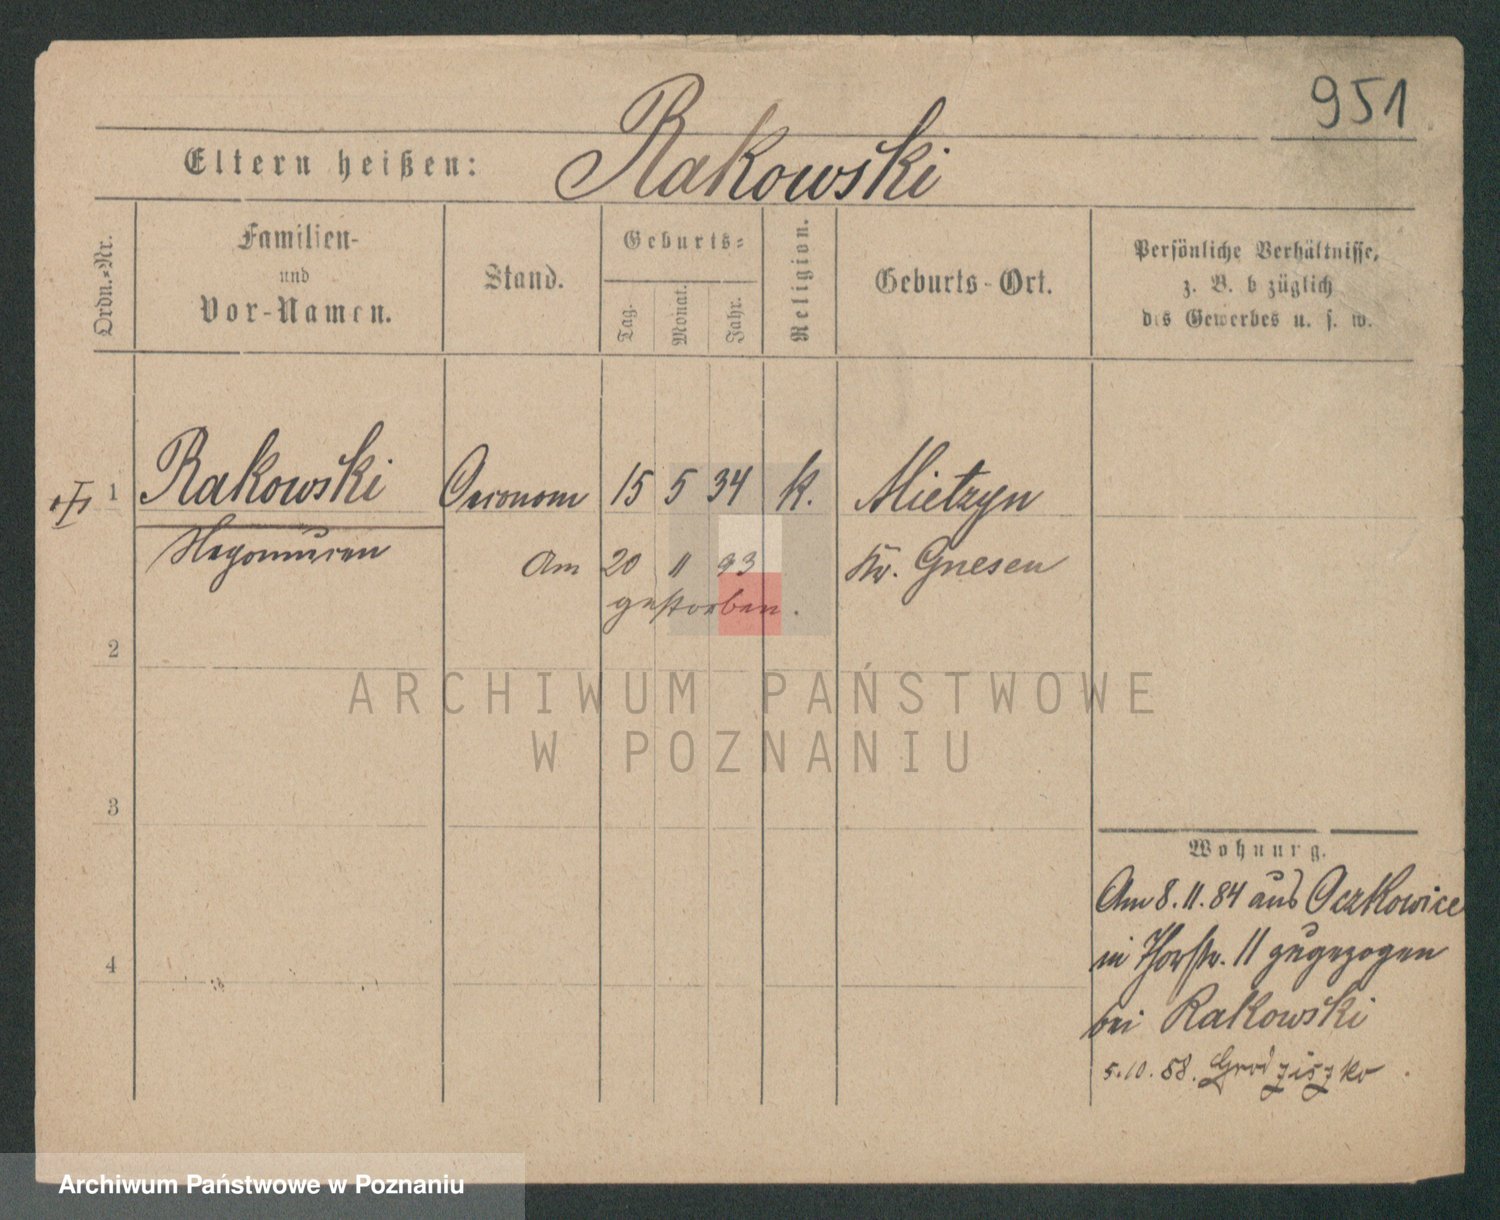 951
Eltern heißen: Rakowski
Ordn.-Nr.
Familien-
und
Vor-Namen.
Stand.
Geburts-
Tag.
Monat.
Jahr.
Religion.
Geburts-Ort.
Persönliche Verhältnisse,
z. B. b züglich
des Gewerbes u. s. w.
1 Rakowski Oeconom 15 5 34 k. Mietzyn
Am 20 11 93 Kr. Gnesen
gestorben.
2
3
4
Wohnung.
Am 8.11.84 aus Oczkowice
in Thorstr. 11 zugezogen
bei Rakowski
5.10.88. Grodziszko
ARCHIWUM PAŃSTWOWE
W POZNANIU
Archiwum Państwowe w Poznaniu